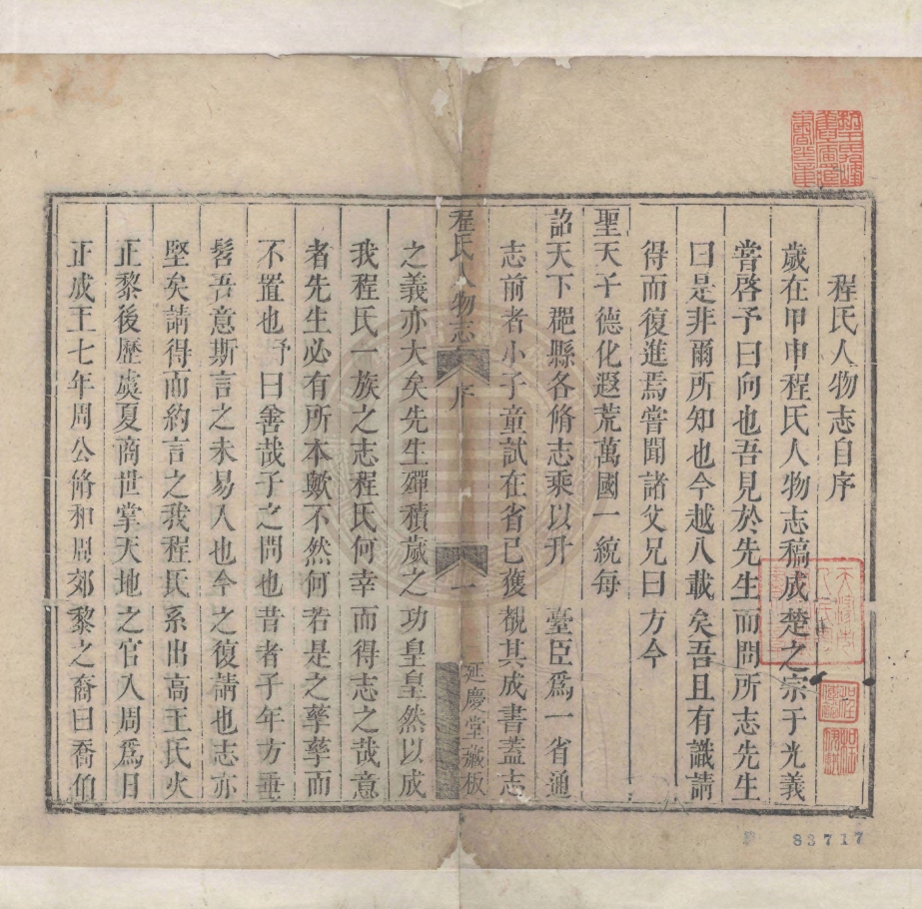 程氏人物志自序
歲在甲申程氏人物志稿成楚之宗于光義
嘗啓予曰向也吾見於先生而問所志先生
曰是非爾所知也今越八載矣吾且有識請
得而復進焉嘗聞諸父兄曰方今
聖天子德化遐荒萬國一統每
詔天下郡縣各脩志乘以升臺臣爲一省通
志前者小子童試在省已獲覩其成書蓋志
程氏人物志
序
一
延慶堂藏板
之義亦大矣先生殫積歲之功皇皇然以成
我程氏一族之志程氏何幸而得志之哉意
者先生必有所本歟不然何若是之孳孳而
不置也予曰善哉子之問也昔者子年方垂
髫吾意斯言之未易入也今之復請也志亦
堅矣請得而約言之我程氏系出高王氏火
正黎後歷虞夏商世掌天地之官入周爲日
正成王七年周公脩和周郊黎之裔曰喬伯
83717